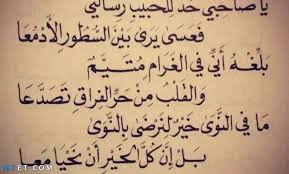 يا صاحبي خذ للحبيب رسالتي
فَعَسَى يَرى بَيْنَ السُّطورِ الأَدْمُعَا
بَلِّغْهُ أَنِّي في الغَرامِ مُتَيَّمٌ
وَالقَلْبُ مِنْ حَرِّ الفِراقِ تَصَدَّعَا
مَا في النَّوَى خَيْرٌ لِنَرْضَى بِالنَّوَى
بَلْ إِنَّ كُلَّ الخَيْرِ أَنْ نَحْيَا مَعَا